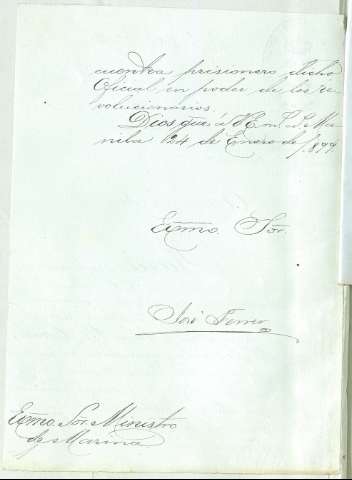 cuentra prisionero dicho
Oficial en poder de los re-
volucionarios.
Dios gue á V.E. m.s a.s Ma-
nila 24 de Enero de 1.877
Exmo Sor.
José Ferrer
Exmo. Sor. Ministro
de Marina